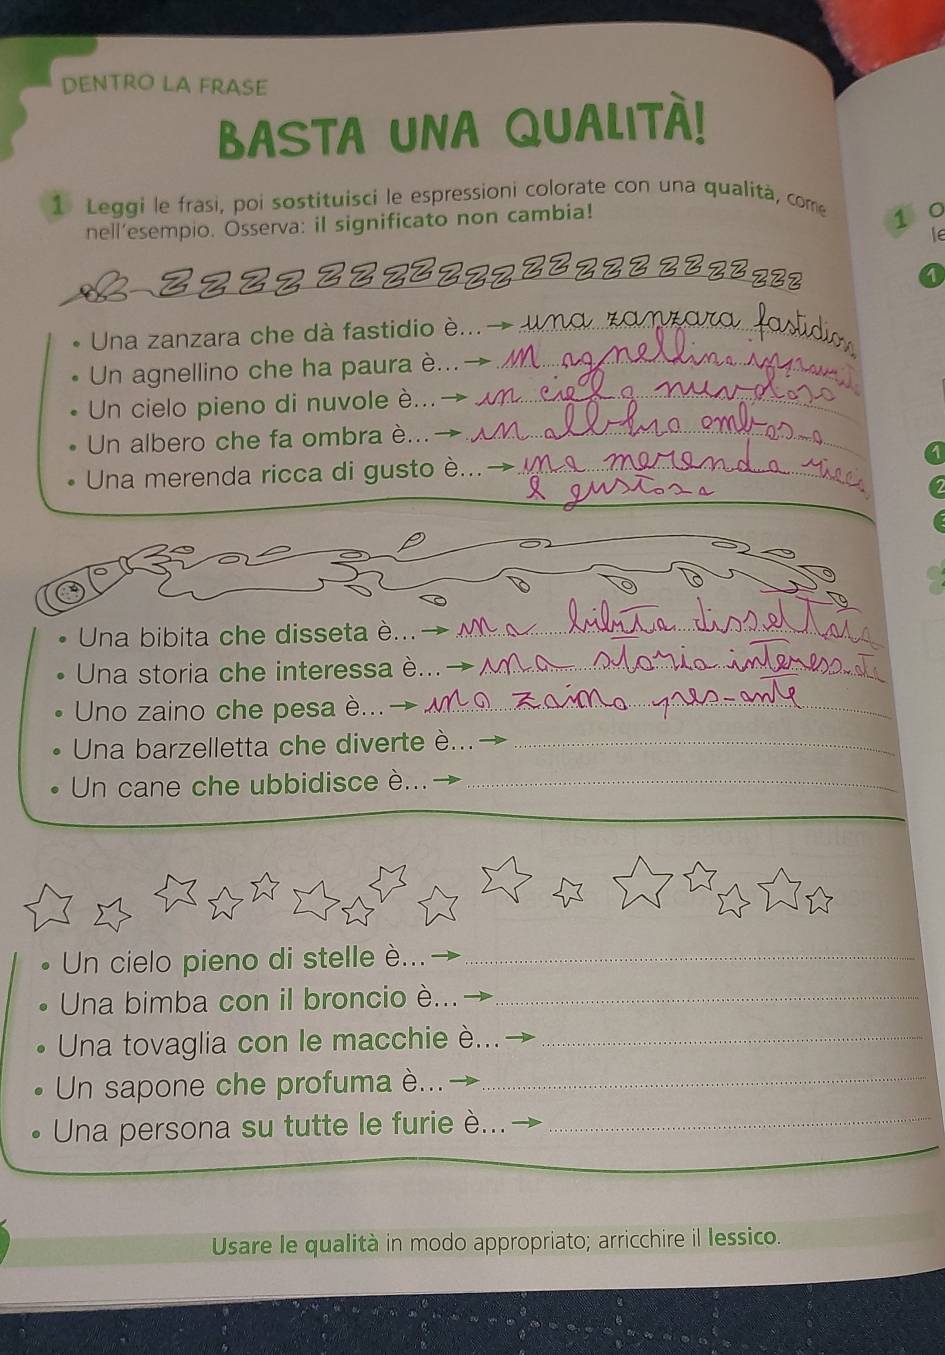 DENTRO LA FRASE
BASTA UNA QUALITÀ!
1 Leggi le frasi, poi sostituisci le espressioni colorate con una qualità, come
nell'esempio. Osserva: il significato non cambia!
• Una zanzara che dà fastidio è... → una zanzara fastidiosa
• Un agnellino che ha paura è... → un agnellino
• Un cielo pieno di nuvole è... → un cielo nuvoloso
• Un albero che fa ombra è... → un albero ombroso
• Una merenda ricca di gusto è... → una merenda ricca
e gustosa
• Una bibita che disseta è... → una bibita dissettata
• Una storia che interessa è... → una storia interessata
• Uno zaino che pesa è... → uno zaino pesante
• Una barzelletta che diverte è... →
• Un cane che ubbidisce è... →
• Un cielo pieno di stelle è... →
• Una bimba con il broncio è... →
• Una tovaglia con le macchie è... →
• Un sapone che profuma è... →
• Una persona su tutte le furie è... →
Usare le qualità in modo appropriato; arricchire il lessico.
1 O
le
1
1
2